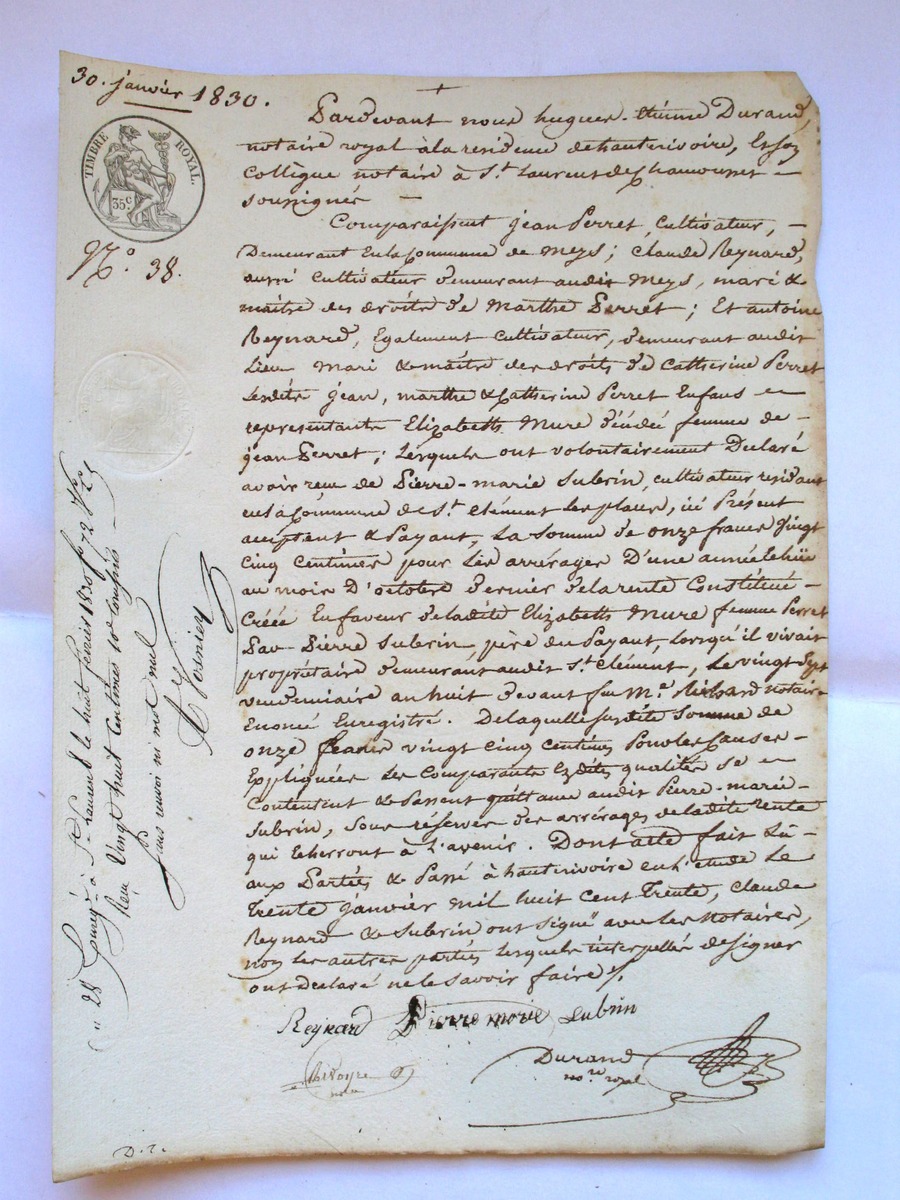 30. janvier 1830.
TIMBRE ROYAL.
35c
No. 38.
Pardevant nous hugues-étienne Durand,
notaire royal à la residence de hauterivoire, et son
Collègue notaire à St. Laurent de Chamousset
soussignés
Comparaissent jean Perret, cultivateur,
Demeurant en la Commune de Meys; claude Reynard,
aussi cultivateur demeurant audit Meys, mari &
maître des droits de Marthe Perret; Et antoine
Reynard, Egalement cultivateur, demeurant audit
Lieu mari & maître des droits de Catherine Perret
Lesdits jean, marthe & Catherine Perret Enfans
representants Elizabeth Mure décédée femme de
jean Perret; Lesquels ont volontairement Declaré
avoir reçu de Pierre-marie Subrin, cultivateur residant
en la Commune de St. Clément les places, ici Présent
acceptant & Payant, La somme de onze francs vingt
cinq centimes pour les arrérages D'une année échue
au mois D'octobre dernier de la rente Constituée
Créée En faveur de ladite Elizabeth Mure femme Perret
Par Pierre Subrin, père du Payant, Lorsqu'il vivait
propriétaire demeurant audit St. Clément, Le vingt sept
vendemiaire an huit devant feu Me. notaire
Enoncé Enregistré. De laquelle susdite Somme de
onze francs vingt cinq centimes Pour les Causes
Expliquées Les Comparants Esdites qualités se
Contentent & Passent quittance audit Pierre-marie
Subrin, sous réserves des arrérages de ladite rente
qui Echerront à l'avenir. Dont acte fait Lû
aux Parties & Passé à hauterivoire en l'étude Le
Trente janvier mil huit cent Trente, Claude
Reynard & Subrin ont signé avec les Notaires,
non les autres parties lesquelles interpellées de signer
ont Declaré ne le savoir faire
Reynard Pierre marie Subrin
Durand
nore royal
D. r.
Enregé à St. Laurent le huit février 1830 fo 72
Reçu Vingt huit Centimes 10e compris
sans renvoi ni mot nul